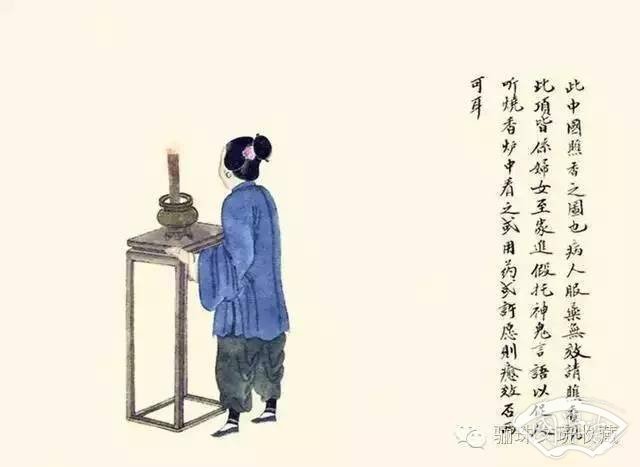 此中國瞧香之圖也病人服藥無效請瞧香
此項皆係婦女至家進假托神鬼言語以
听燒香炉中看之或用药或許愿則癒效否
可耳
骊珠
收藏